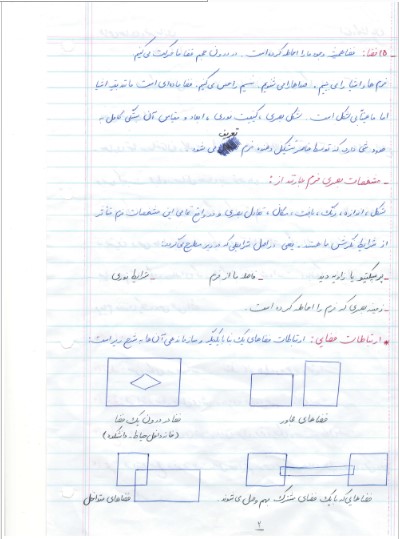 _ 15 فضا: فضا همیشه وجود ما را احاطه کرده است. در درون حجم فضا ما حرکت می‌کنیم
فرم‌ها و اشیا را می‌بینیم، صداها را می‌شنویم، نسیم را حس می‌کنیم. فضا ماده‌ای است مانند بقیه اشیا
اما ماهیتاً بی‌شکل است. شکل بصری، کیفیت نوری، ابعاد و مقیاس آن بستگی کامل به
حدودی دارد که توسط عناصر تشکیل دهنده فرم تعریف می‌شود
_ مشخصات بصری فرم عبارتند از:
شکل، اندازه، رنگ، بافت، مکان، تعادل بصری و در واقع تمامی این مشخصات فرم متأثر
از شرایط نگرش ما هستند. یعنی در اصل شرایطی که ما در محیط می‌نگریم:
_ پرسپکتیو یا زاویه دید _ فاصله ما از فرم _ شرایط نوری
_ زمینه بصری که فرم را احاطه کرده است.
* ارتباطات فضایی: ارتباطات فضاهای یک بنا با یکدیگر و سازماندهی آن‌ها به شرح زیر است:
فضاهای مجاور
فضا در درون یک فضا
(خانه داخل حیاط، دانشکده)
فضاهایی که با یک فضای مشترک بهم وصل می‌شوند
فضاهای متداخل